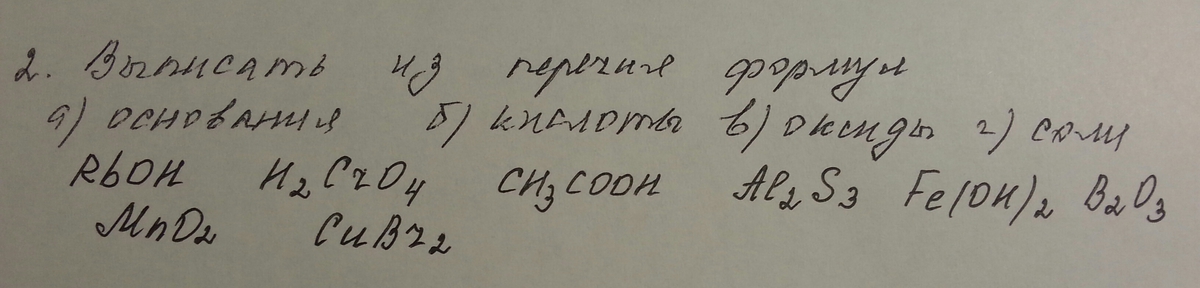 2. Выписать из перечня формул
а) основания б) кислоты в) оксиды г) соли
RbOH H₂CrO₄ CH₃COOH Al₂S₃ Fe(OH)₂ B₂O₃
MnO₂ CuBr₂